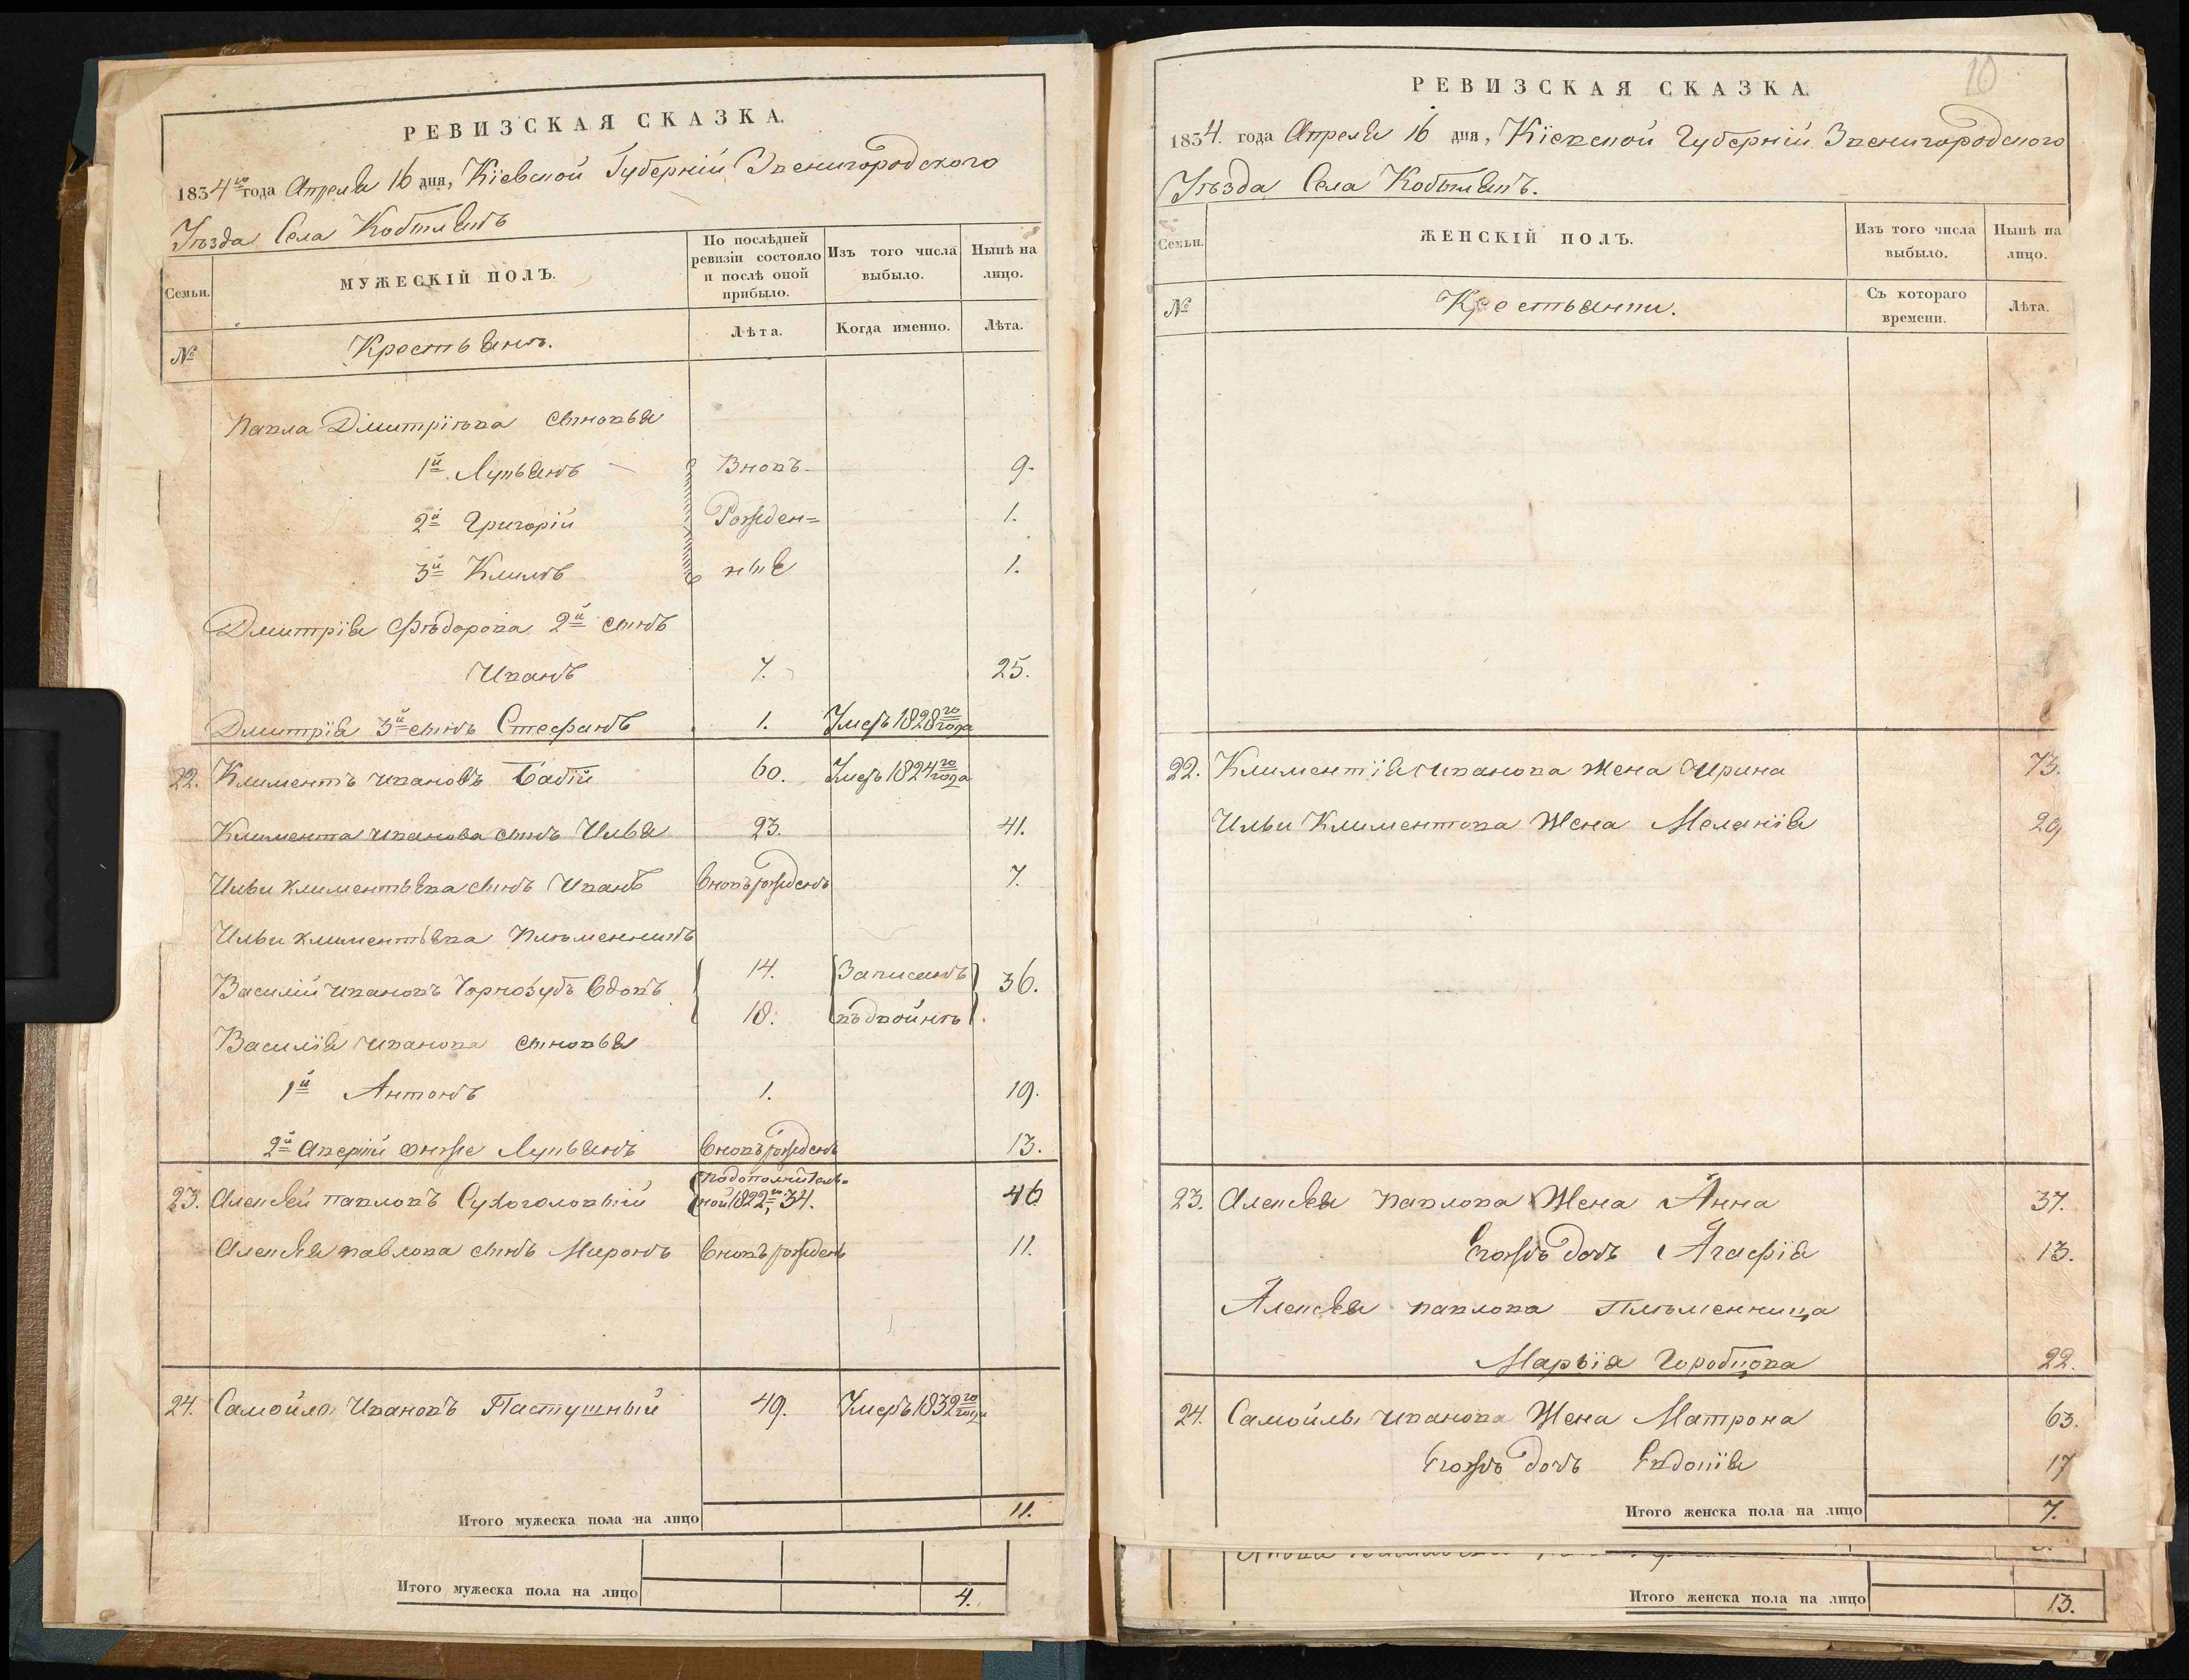 РЕВИЗСКАЯ СКАЗКА.
1834го года Апреля 16 дня, Кіевской Губерніи Звенигородского
Уѣзда Села Кобылякъ
Семьи.
МУЖЕСКІЙ ПОЛЪ.
По послѣдней ревизіи состояло и послѣ оной прибыло.
Изъ того числа выбыло.
Нынѣ на лицо.
№
Крестьянъ.
Лѣта.
Когда именно.
Лѣта.
Павла Дмитріева сыновья
1й Лукьянъ Вновь 9.
2й Григорій Рожден= 1.
3й Климъ ные 1.
Дмитрія Фѣдорова 2й сынъ
Иванъ 7. 25.
Дмитрія 3й сынъ Стефанъ 1. Умеръ 1828го года
22. Климентъ Ивановъ Бабій 60. Умеръ 1824го года
Климента Иванова сынъ Илья 23. 41.
Ильи Климентьева сынъ Иванъ Вновь рожденъ 7.
Ильи Климентьева Племенникъ
Василій Ивановъ Чорнозубъ Вдовъ 14. Записанъ 36.
18. въ двойнѣ
Василія Иванова сыновья
1й Антонъ 1. 19.
2й Аверкій онже Лукьянъ Вновь рожденъ 13.
23. Алексѣй Павловъ Сухоголовый По дополнитель=ной 1822го, 34. 46
Алексѣя Павлова сынъ Миронъ Вновь рожденъ 11.
24. Самойло Ивановъ Пастушный 49. Умеръ 1832го года
Итого мужеска пола на лицо 11.
Итого мужеска пола на лицо 4.
10
РЕВИЗСКАЯ СКАЗКА.
1834. года Апреля 16 дня, Кіевской Губерніи Звенигородского
Уѣзда Села Кобылякъ.
Семьи.
ЖЕНСКІЙ ПОЛЪ.
Изъ того числа выбыло.
Нынѣ на лицо.
№
Крестьянки.
Съ котораго времени.
Лѣта.
22. Климентія Иванова жена Ирина 73.
Ильи Климентова Жена Меланія 29
23. Алексѣя Павлова Жена Анна 37.
Егожъ дочь Агафія 13.
Алексѣя Павлова Племенница
Марыя Горобцова 22.
24. Самойлы Иванова Жена Матрона 63.
Егожъ дочь Евдокія 17
Итого женска пола на лицо 7.
Итого женска пола на лицо 13.